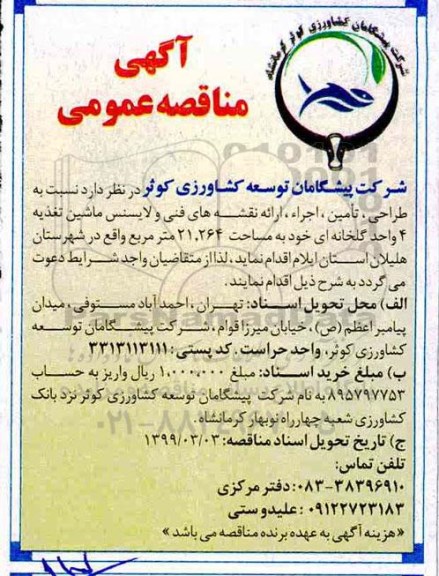 شرکت پیشگامان کشاورزی کوثر کرمانشاه
آگهی
مناقصه عمومی
شرکت پیشگامان توسعه کشاورزی کوثر در نظر دارد نسبت به
طراحی، تأمین، اجراء، ارائه نقشه های فنی و لایسنس ماشین تغذیه
۴ واحد گلخانه ای خود به مساحت ۲۱,۲۶۴ متر مربع واقع در شهرستان
هلیلان استان ایلام اقدام نماید، لذا از متقاضیان واجد شرایط دعوت
می گردد به شرح ذیل اقدام نمایند.
الف) محل تحویل اسناد: تهران، احمدآباد مستوفی، میدان
پیامبر اعظم (ص)، خیابان میرزا قوام، شرکت پیشگامان توسعه
کشاورزی کوثر، واحد حراست. کد پستی: ۳۳۱۳۱۱۳۱۱۱
ب) مبلغ خرید اسناد: مبلغ ۱,۰۰۰,۰۰۰ ریال واریز به حساب
۸۹۵۷۹۷۷۵۳ به نام شرکت پیشگامان توسعه کشاورزی کوثر نزد بانک
کشاورزی شعبه چهارراه نوبهار کرمانشاه.
ج) تاریخ تحویل اسناد مناقصه: ۱۳۹۹/۰۳/۰۳
تلفن تماس:
۰۸۳-۳۸۳۹۶۹۱۰: دفتر مرکزی
۰۹۱۲۲۷۲۳۱۸۳ : علیدوستی
«هزینه آگهی به عهده برنده مناقصه می باشد»